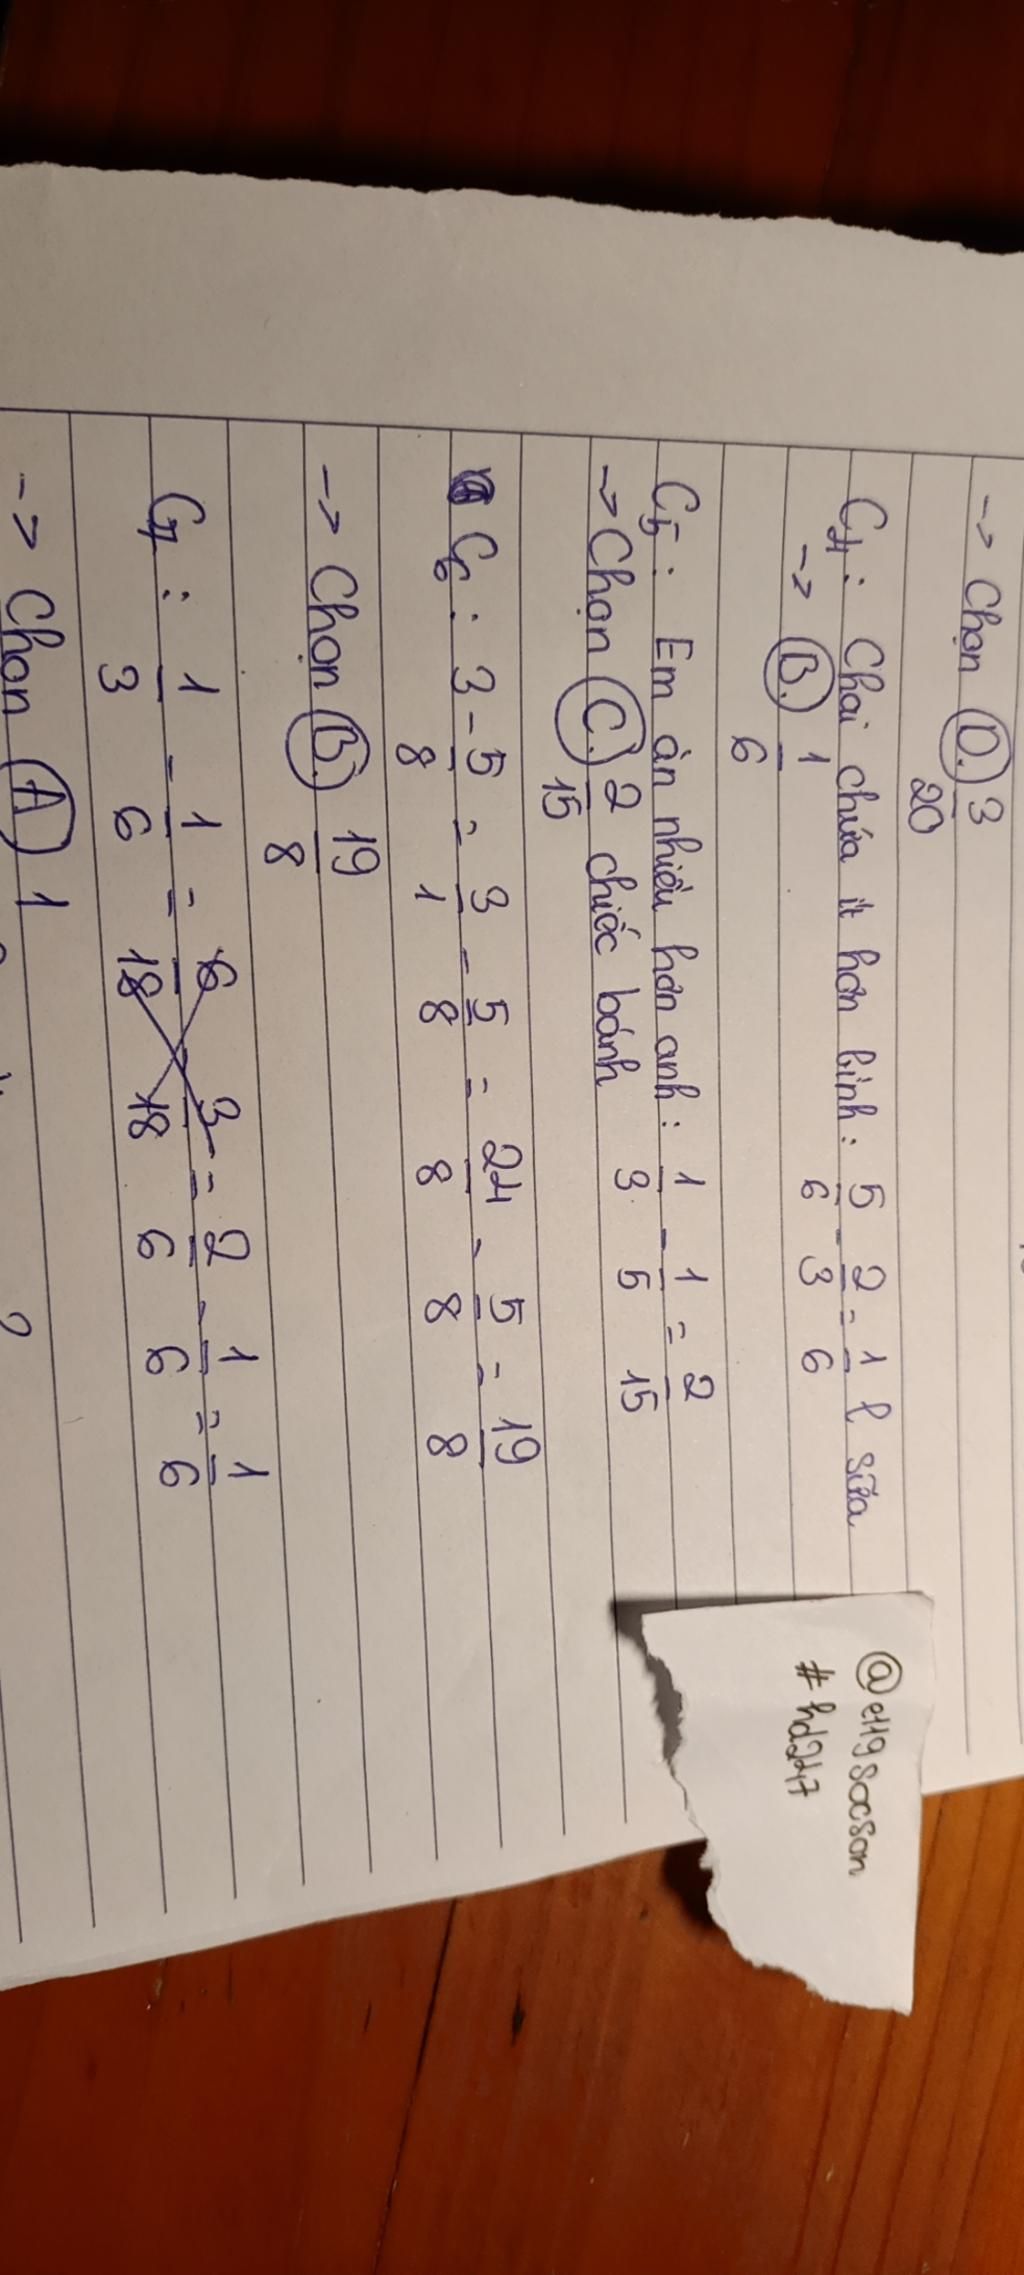 -> Chọn D. 3/20
C4: Chai chứa ít hơn bình: 5/6 - 2/3 = 1/6 l sữa
-> B. 1/6
C5: Em ăn nhiều hơn anh: 1/3 - 1/5 = 2/15
-> Chọn C. 2/15 chiếc bánh
C6: 3 - 5/8 = 3/1 - 5/8 = 24/8 - 5/8 = 19/8
-> Chọn B. 19/8
C7: 1/3 - 1/6 = 6/18 3/18 = 2/6 - 1/6 = 1/6
-> Chọn A 1
@e119socson
#hd247